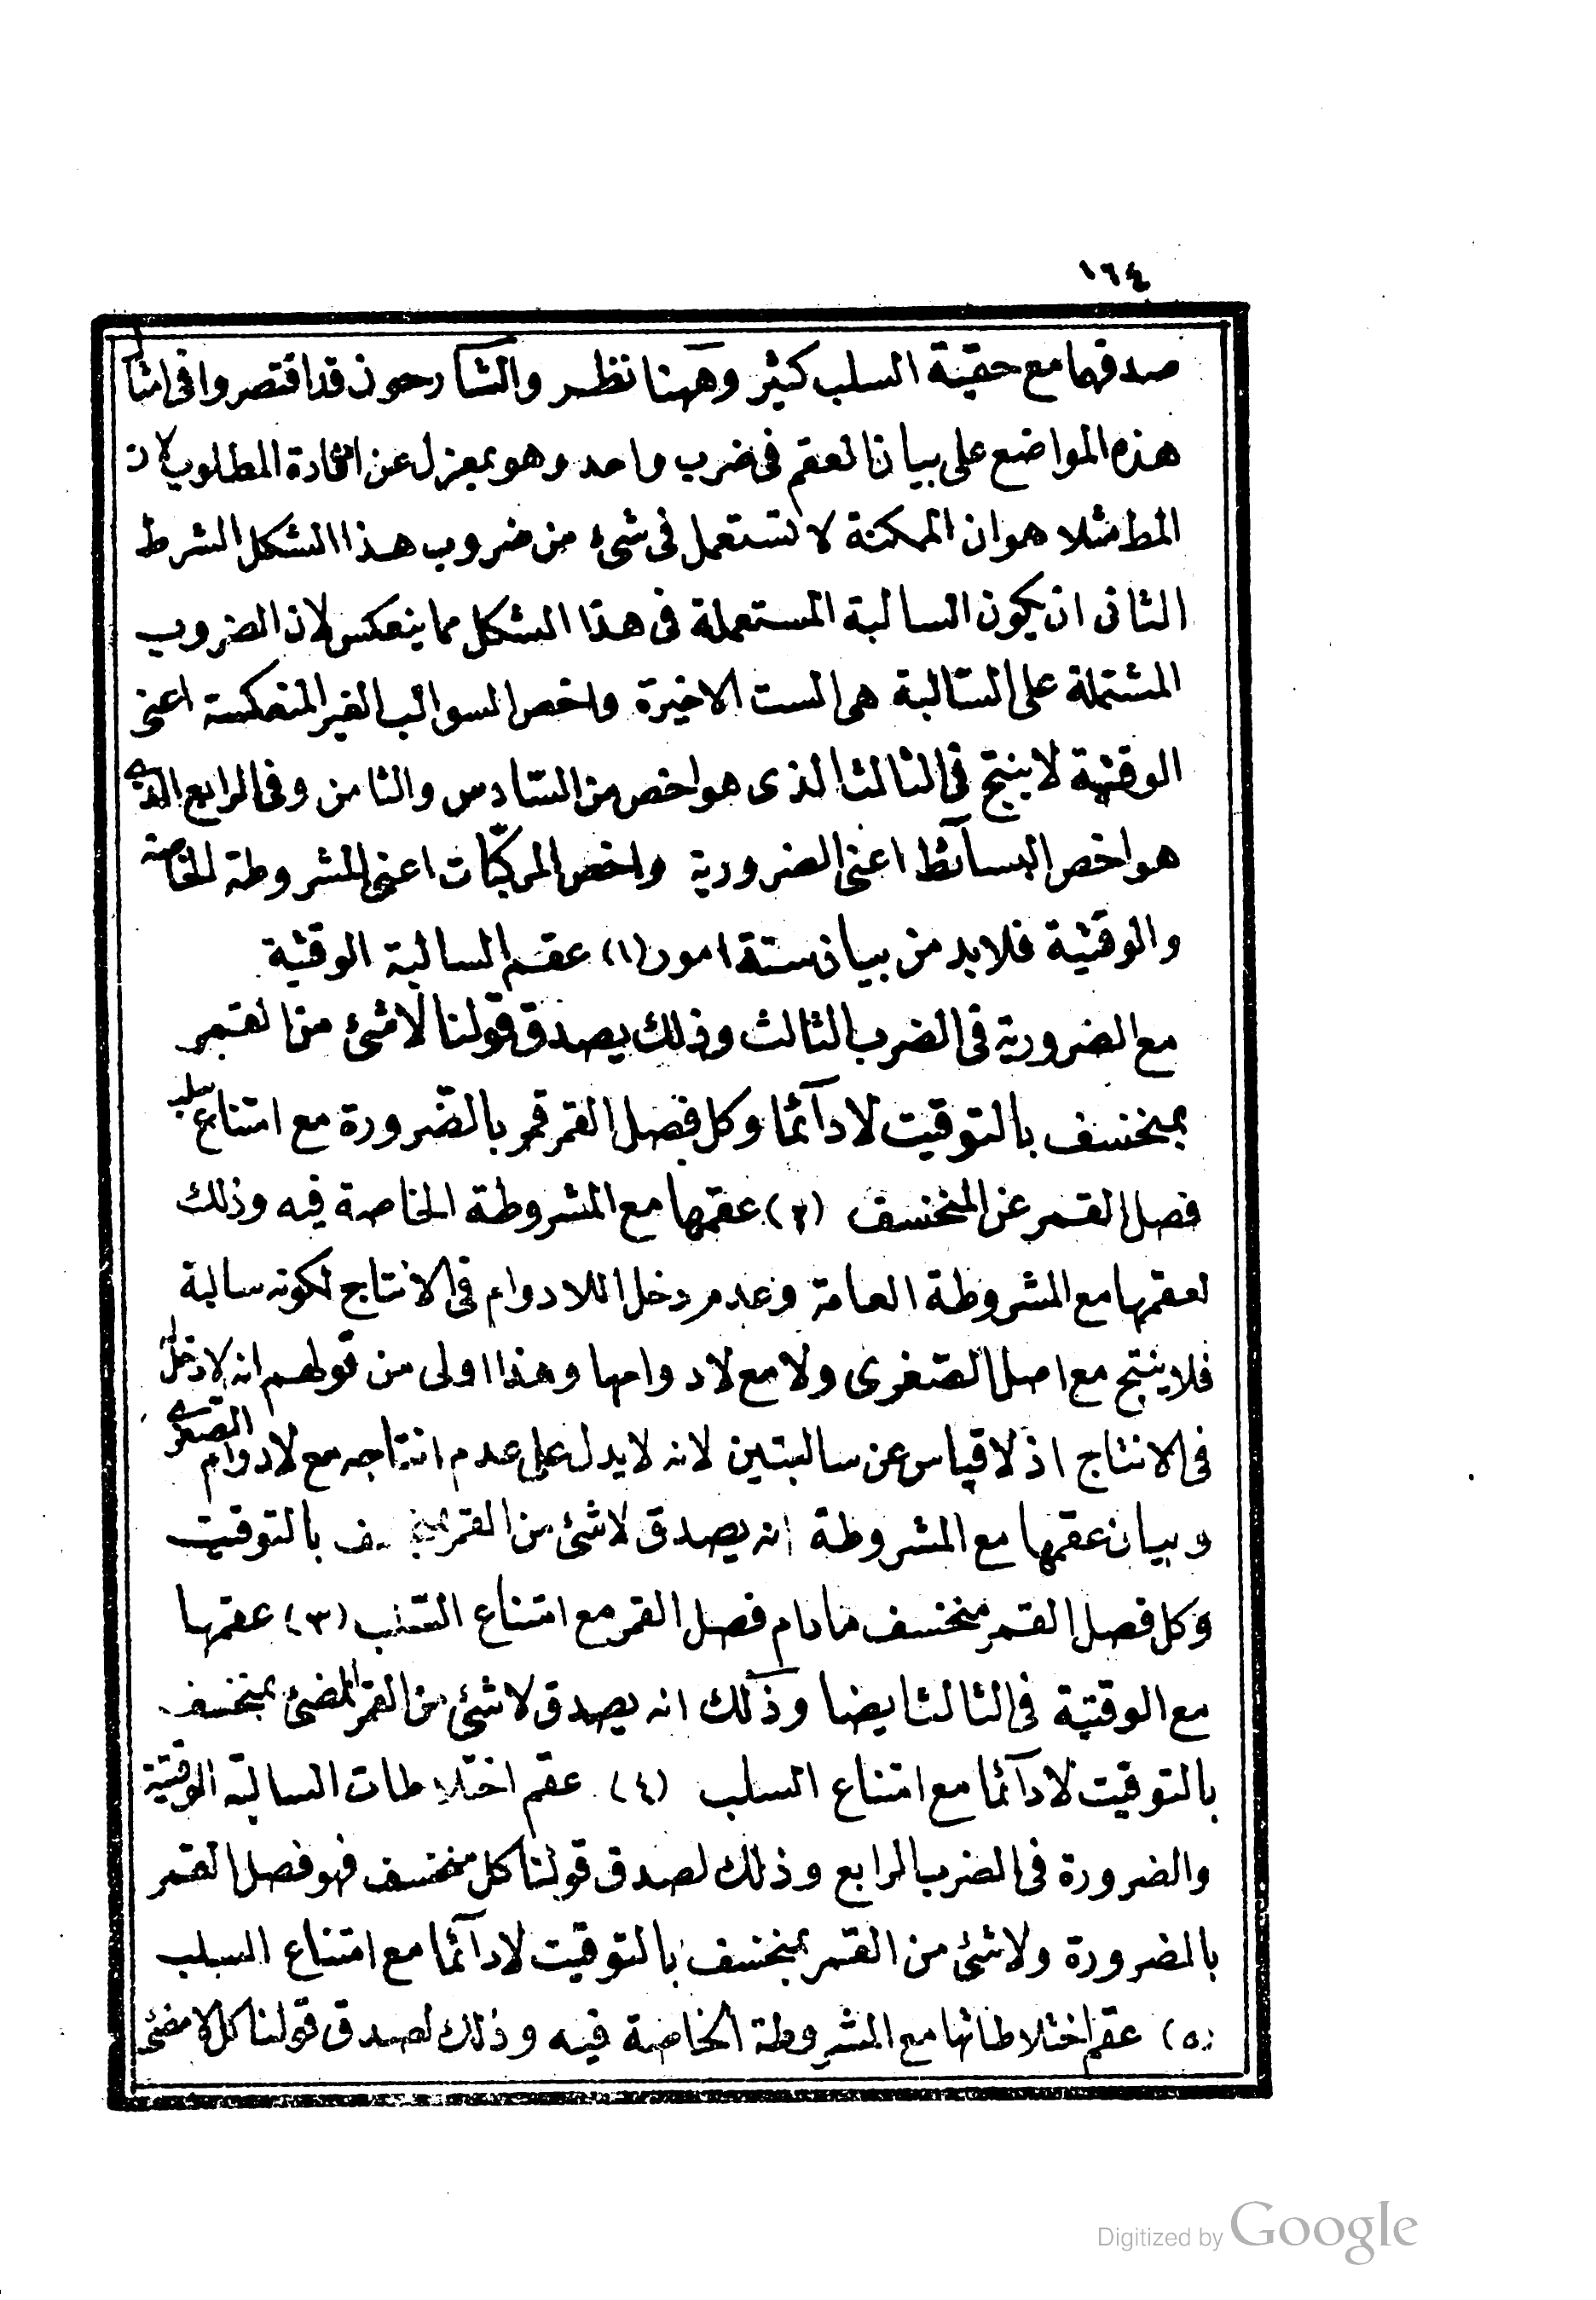 ١٦٤
صدقهما مع حقية السلب كثير وههنا نظر والشارحون قد اقتصروا فى امثال
هذه المواضع على بيان العقم فى ضرب واحد وهو بمعزل عن افادة المطلوب لان
المط مثلا هو ان الممكنة لا تستعمل فى شئ من ضروب هذا الشكل الشرط
الثانى ان يكون السالبة المستعملة فى هذا الشكل مما ينعكس لان الضروب
المشتملة على السالبة هى الست الاخيرة واخص السوالب الغير المنعكسة اعنى
الوقتية لا ينتج فى الثالث الذى هو اخص من السادس والثامن وفى الرابع الذى
هو اخص البسائط اعنى الضرورية واخص المركبات اعنى المشروطة الخاصة
والوقتية فلا بد من بيان ستة امور (١) عقم السالبة الوقتية
مع الضرورية فى الضرب الثالث وذلك يصدق قولنا لا شئ من القمر
بمنخسف بالتوقيت لا دآئما وكل فصل القمر قمر بالضرورة مع امتناع سلب
فصل القمر عن المنخسف (٢) عقمها مع المشروطة الخاصة فيه وذلك
لعقمها مع المشروطة العامة وعدم دخل اللادوام فى الانتاج لكونه سالبة
فلا ينتج مع اصل الصغرى ولا مع لا دوامها وهذا اولى من قولهم انه لا دخل له
فى الانتاج اذ لا قياس عن سالبتين لانه لا يدل على عدم انتاجه مع لا دوام الصغرى
وبيان عقمها مع المشروطة انه يصدق لا شئ من القمر بمنخسف بالتوقيت
وكل فصل القمر منخسف مادام فصل القمر مع امتناع السلب (٣) عقمها
مع الوقتية فى الثالث ايضا وذلك انه يصدق لا شئ من القمر المضئ بمنخسف
بالتوقيت لا دآئما مع امتناع السلب (٤) عقم اختلاطات السالبة الوقتية
والضرورة فى الضرب الرابع وذلك لصدق قولنا كل منخسف فهو فصل القمر
بالضرورة ولا شئ من القمر بمنخسف بالتوقيت لا دآئما مع امتناع السلب
(٥) عقم اختلاطاتها مع المشروطة الخاصة فيه وذلك لصدق قولنا كل لا مضئ
Digitized by Google